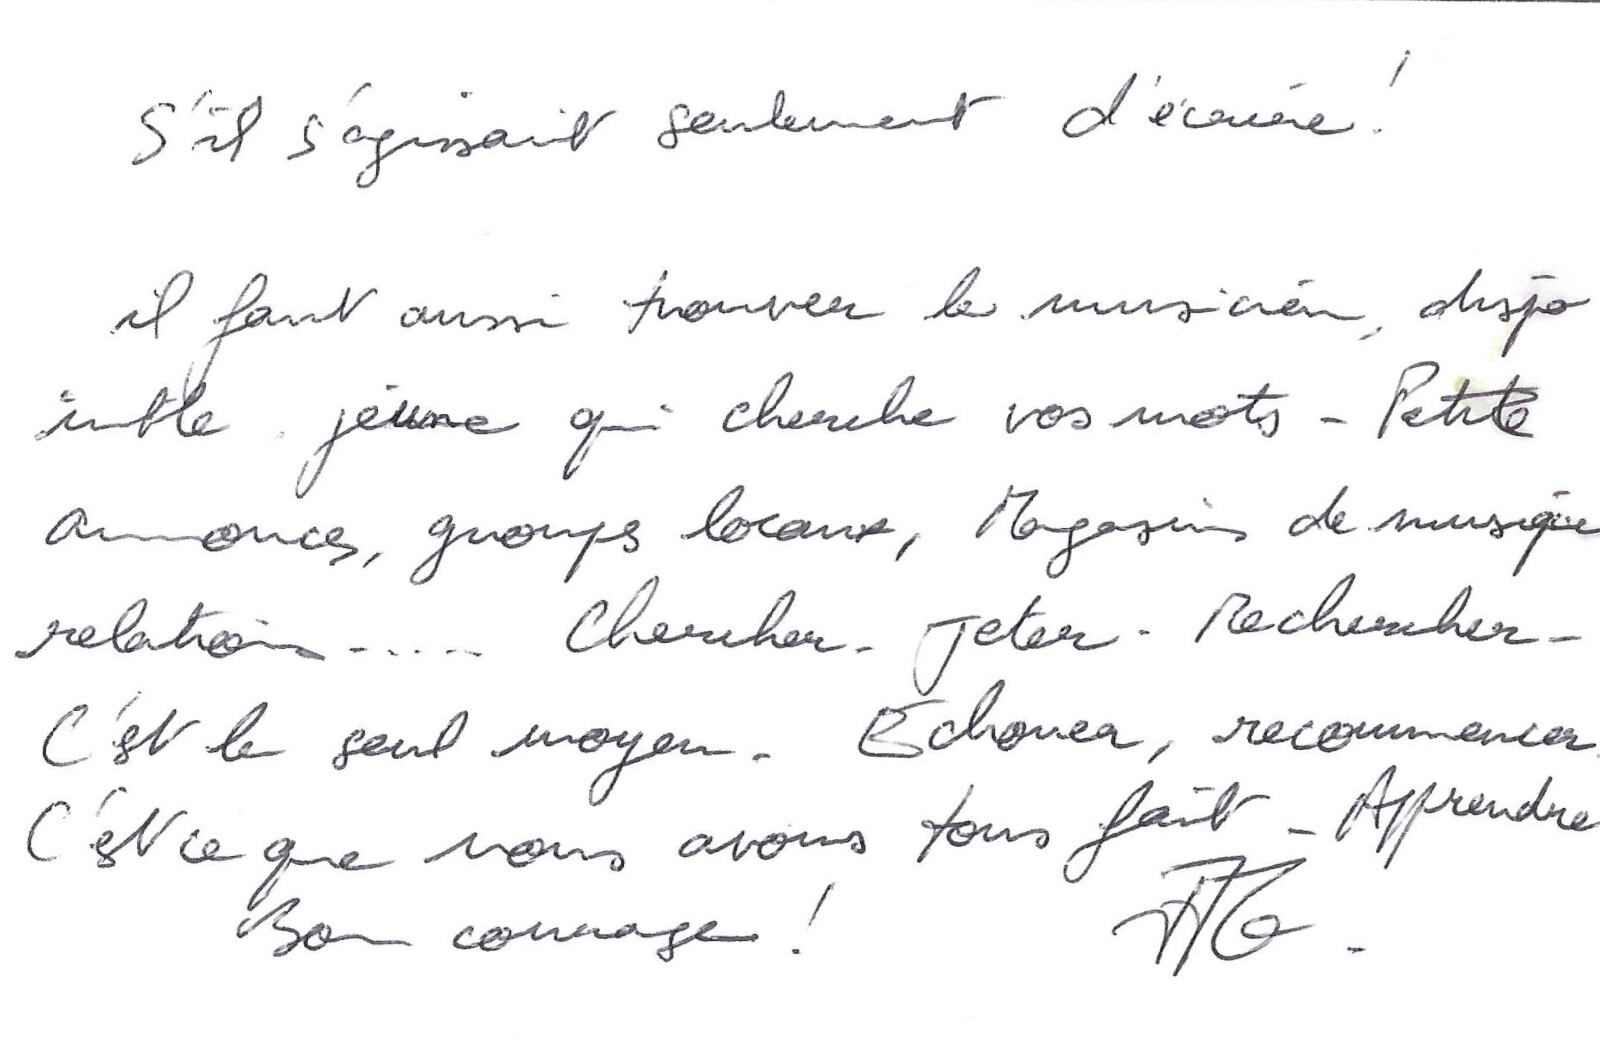 S'il s'agissait seulement d'écrire !
il faut aussi trouver le musicien, dispo
nible. jeune qui cherche vos mots - Petite
annonces, groupes locaux, Magasins de musique
relation ..... Chercher - Jeter - Rechercher -
C'est le seul moyen. Echouer, recommencer.
C'est ce que nous avons tous fait - Apprendre
Bon courage !